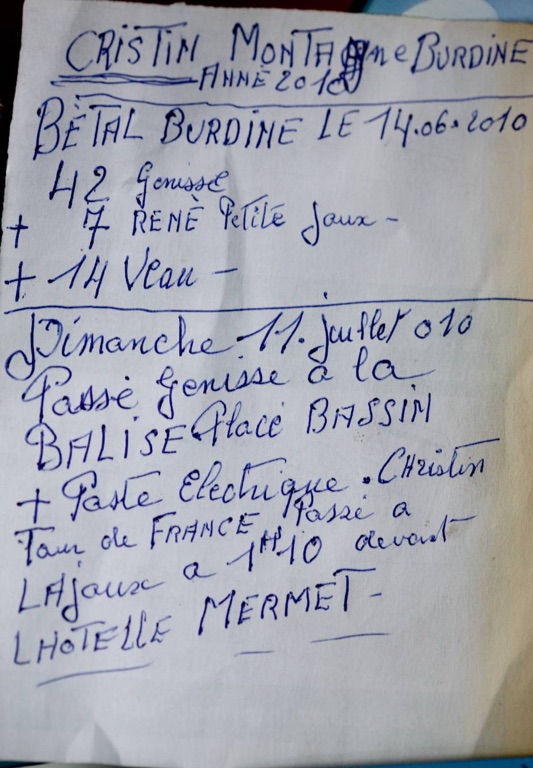 CRISTIN MONTAgne BURDINE
ANNÈ 2010
BÈTAL BURDINE LE 14.06.2010
42 Genisse
+ 7 RENÈ Petite Jaux -
+ 14 Veau -
Dimanche 11. Juillet 010
Passé Genisse a la
BALISE Placé BASSIN
+ Poste Electrique. CHristin
Tour de FRANCE Passé a
LAjoux a 1H10 devant
LHOTELLE MERMET -